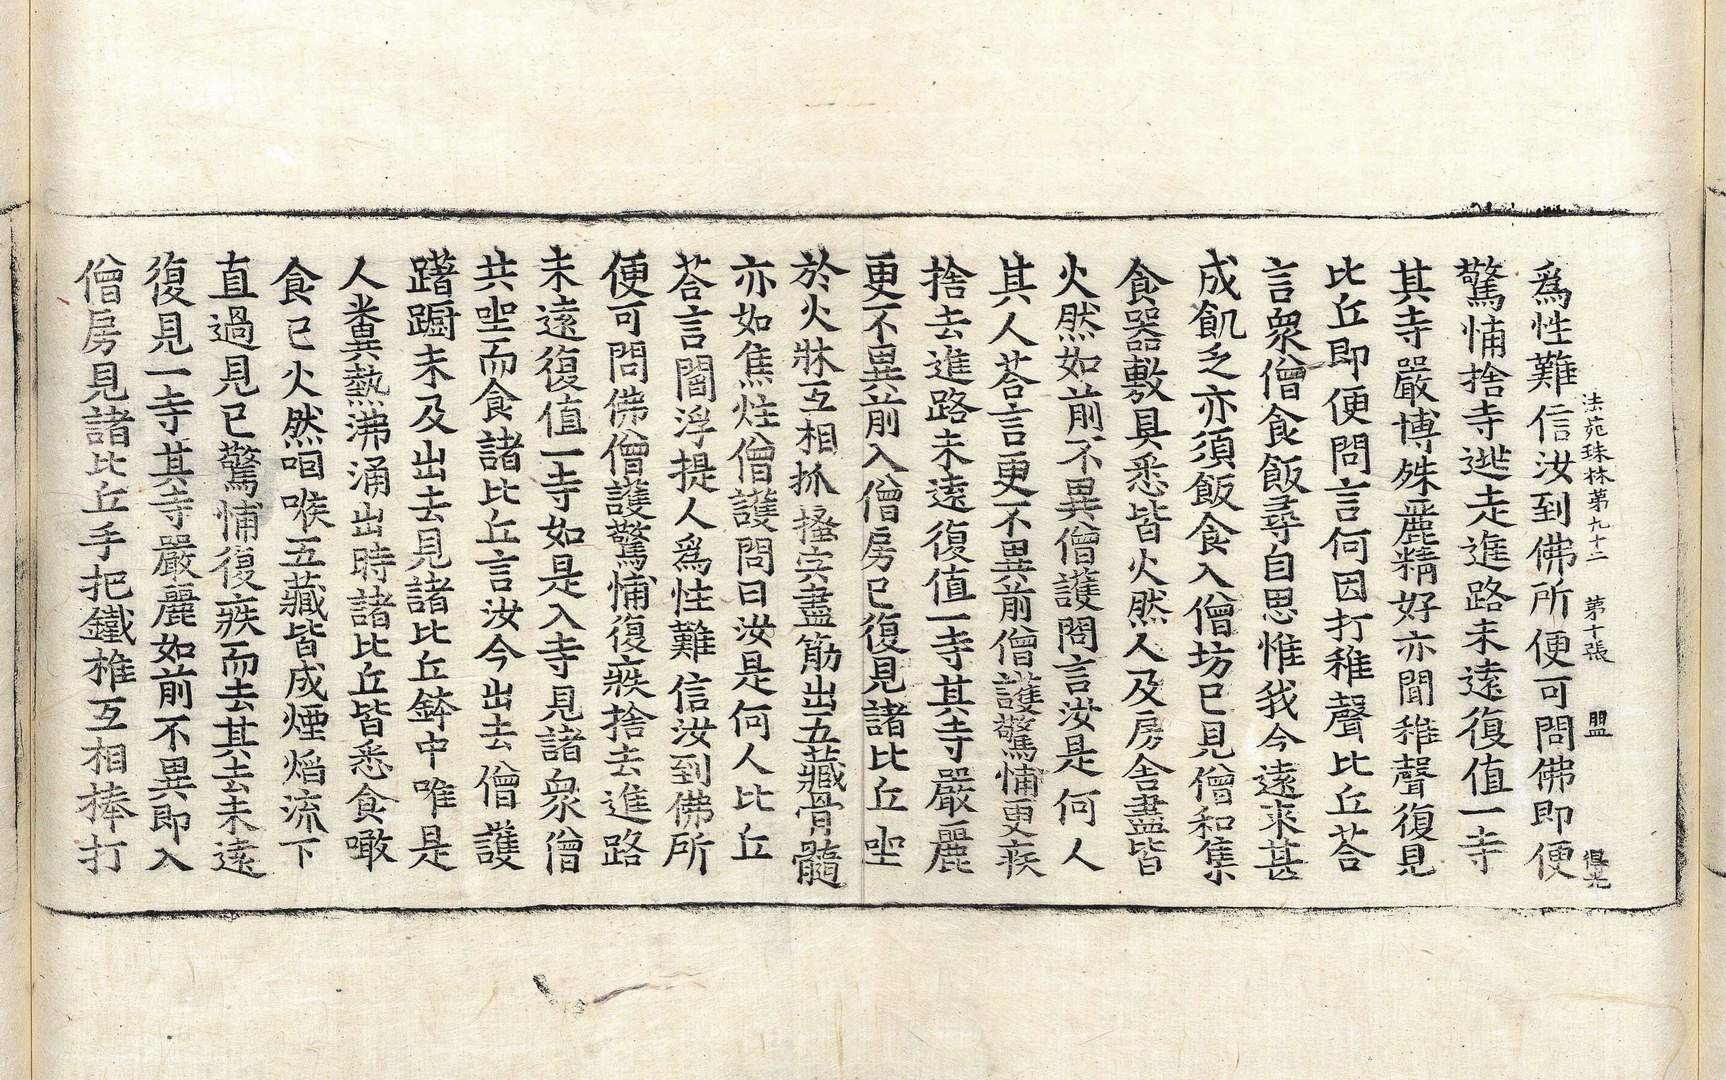 法苑珠林第九十二 第十張 盟 得光
爲性難信汝到佛所便可問佛即便
驚怖捨寺逃走進路未遠復值一寺
其寺嚴博殊麗精好亦聞稚聲復見
比丘即便問言何因打稚聲比丘荅
言衆僧食飯尋自思惟我今遠來甚
成飢乏亦須飯食入僧坊已見僧和集
食器敷具悉皆火然人及房舍盡皆
火然如前不異僧護問言汝是何人
其人荅言更不異前僧護驚怖更疾
捨去進路未遠復值一寺其寺嚴麗
更不異前入僧房已復見諸比丘坐
於火牀互相抓搔肉盡筋出五藏骨髓
亦如焦炷僧護問曰汝是何人比丘
荅言閻浮提人爲性難信汝到佛所
便可問佛僧護驚怖復疾捨去進路
未遠復值一寺如是入寺見諸衆僧
共坐而食諸比丘言汝今出去僧護
躇蹰未及出去見諸比丘鉢中唯是
人糞熱沸涌出時諸比丘皆悉食噉
食已火然咽喉五藏皆成煙焰流下
直過見已驚怖復疾而去其去未遠
復見一寺其寺嚴麗如前不異即入
僧房見諸比丘手把鐵椎互相捧打